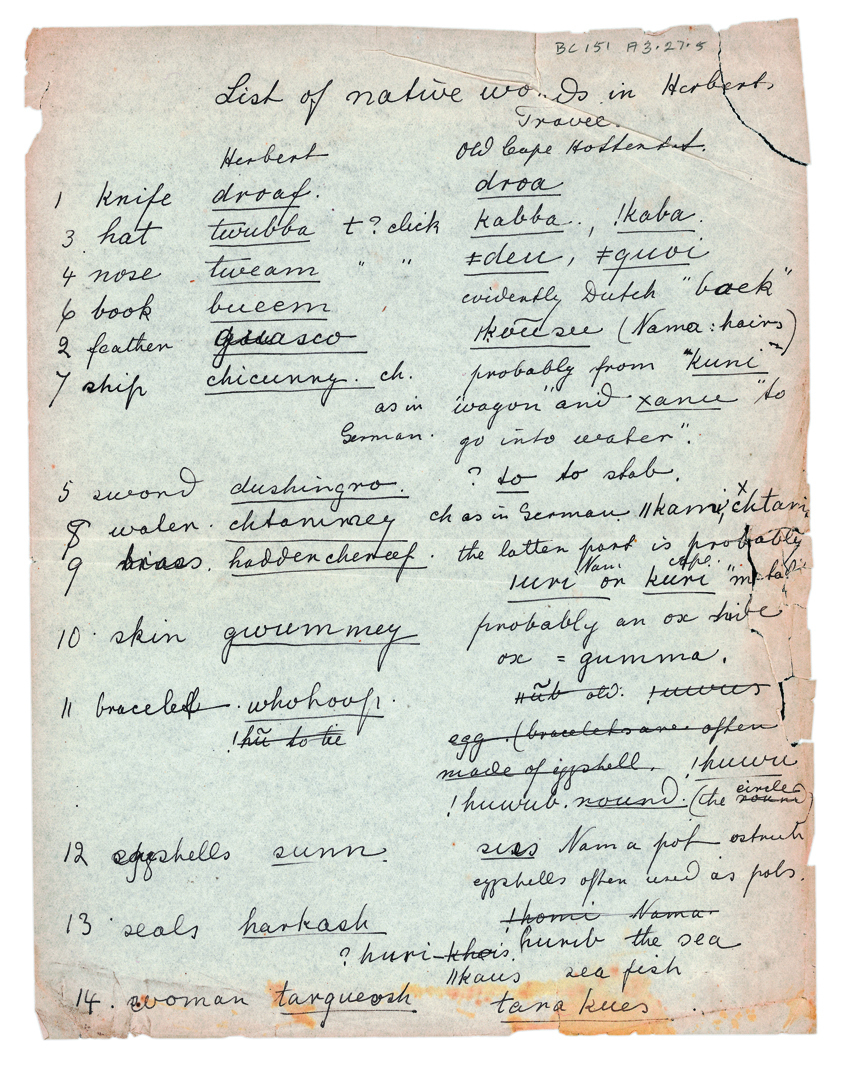 BC 151 A3.27.5
List of native words in Herberts
Travel.
Herbert Old Cape Hottentot.
1 knife droaf. droa
3 hat twubba t? click kabba., !kaba.
4 nose tweam " " ǂdeu, ǂguoi
6 book bueem evidently Dutch "boek"
2 feather guasco !kousee (Nama: hairs)
7 ship chicunny. ch. probably from "kuni"
as in "wagon" and xanee "to
German. go into water".
5 sword dushingro. ? to to stab.
8 water. chtammey ch as in German. ǁkami, chtami
9 brass. hadderchereef. the latter part is probably
Nam. Cape.
!uri or kuri
10. skin gwummey probably an ox hide
ox = gumma.
11 bracelet. whohoop. old.
!hũ to tie egg. (bracelets are often
made of eggshell. !huwu
!huwub. round. (the circle round)
12 eggshells sunn. sues Nama pot ostrich
eggshells often used as pots.
13 seals harkash !homi Nama
? huri-khois. hurib the sea
ǁkaus sea fish
14. woman tarqueosh tara kues.